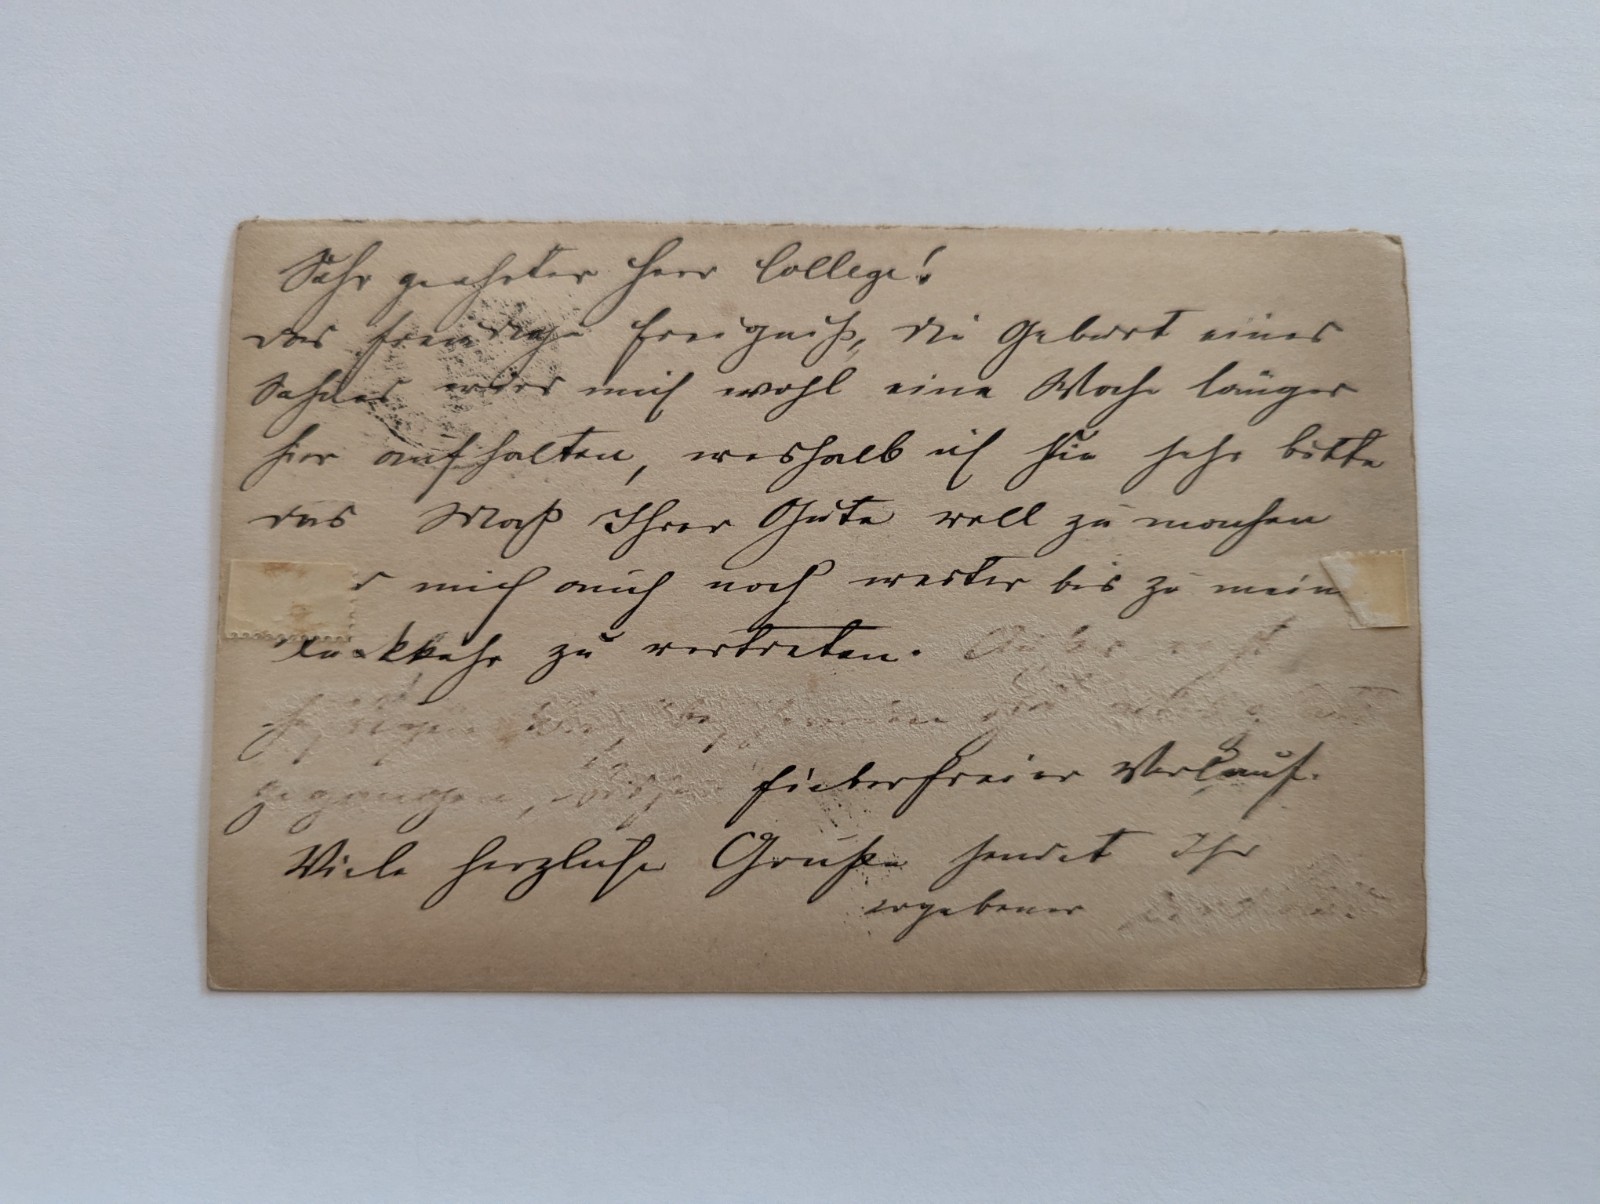 Sehr geehrter Herr College!
das freudige Ereigniß, die Geburt eines
Sohnes wird mich wohl eine Woche länger
hier aufhalten, weshalb ich Sie sehr bitte
das Maß Ihrer Güte voll zu machen
mich auch noch weiter bis zu mein
zu vertreten.
gegangen, fieberfreier Verlauf.
Viele herzliche Grüße sendet Ihr
ergebener